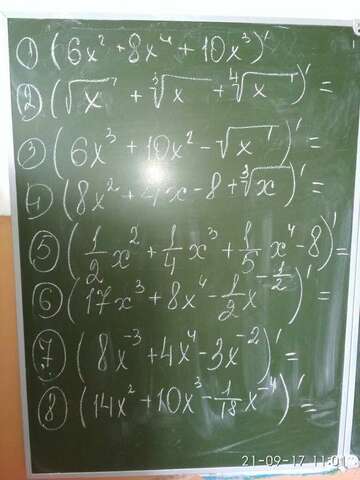 1) (6x² + 8x⁴ + 10x³)'
2) (√x + ∛x + ∜x)' =
3) (6x³ + 10x² - √x)' =
4) (8x² + 4x - 8 + ∛x)' =
5) (1/2 x² + 1/4 x³ + 1/5 x⁴ - 8)' =
6) (17x³ + 8x⁴ - 1/2 x^(-1/2))' =
7) (8x⁻³ + 4x⁴ - 3x⁻²)' =
8) (14x² + 10x³ - 1/18 x⁻⁴)' =
21-09-17 11:01